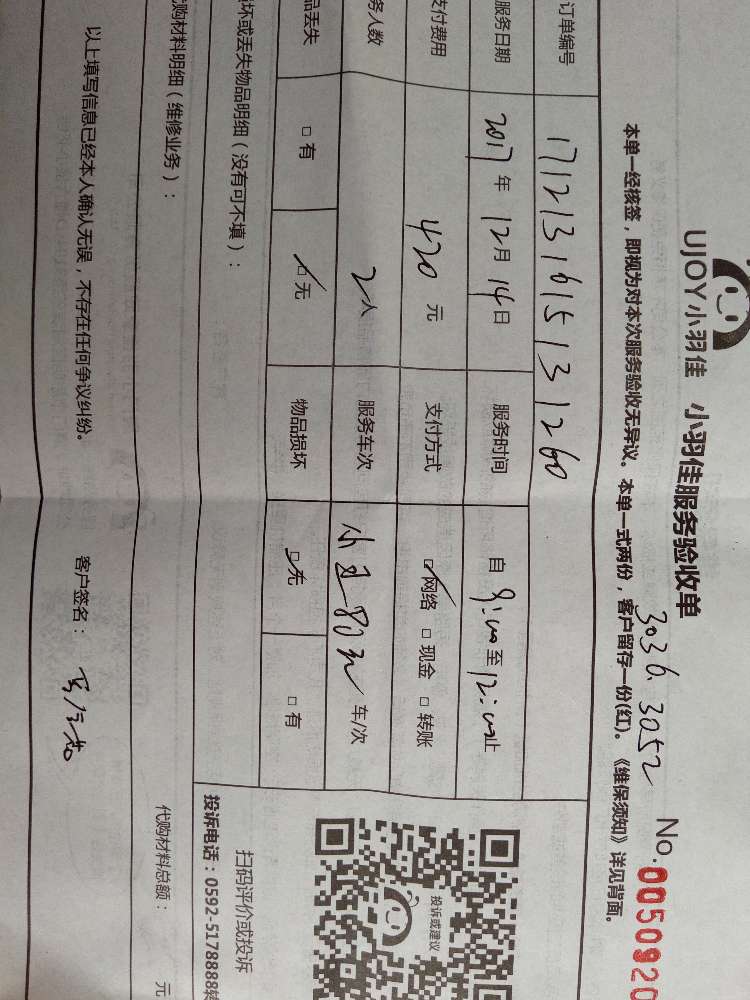 UJOY小羽佳 小羽佳服务验收单
3036. 3052
No.0050920
本单一经核签，即视为对本次服务验收无异议。本单一式两份，客户留存一份(红)。《维保须知》详见背面。
订单编号 1712131615131260
服务日期 2017年 12月 14日 服务时间 自 9:00至12:00止
支付费用 420 元 支付方式 网络 □ 现金 □ 转账
务人数 2人 服务车次 车/次
品丢失 □ 有 无 物品损坏 无 □ 有
坏或丢失物品明细（没有可不填）：
购材料明细（维修业务）：
代购材料总额： 元
以上填写信息已经本人确认无误，不存在任何争议纠纷。 客户签名：
投诉或建议
扫码评价或投诉
投诉电话：0592-5178888转